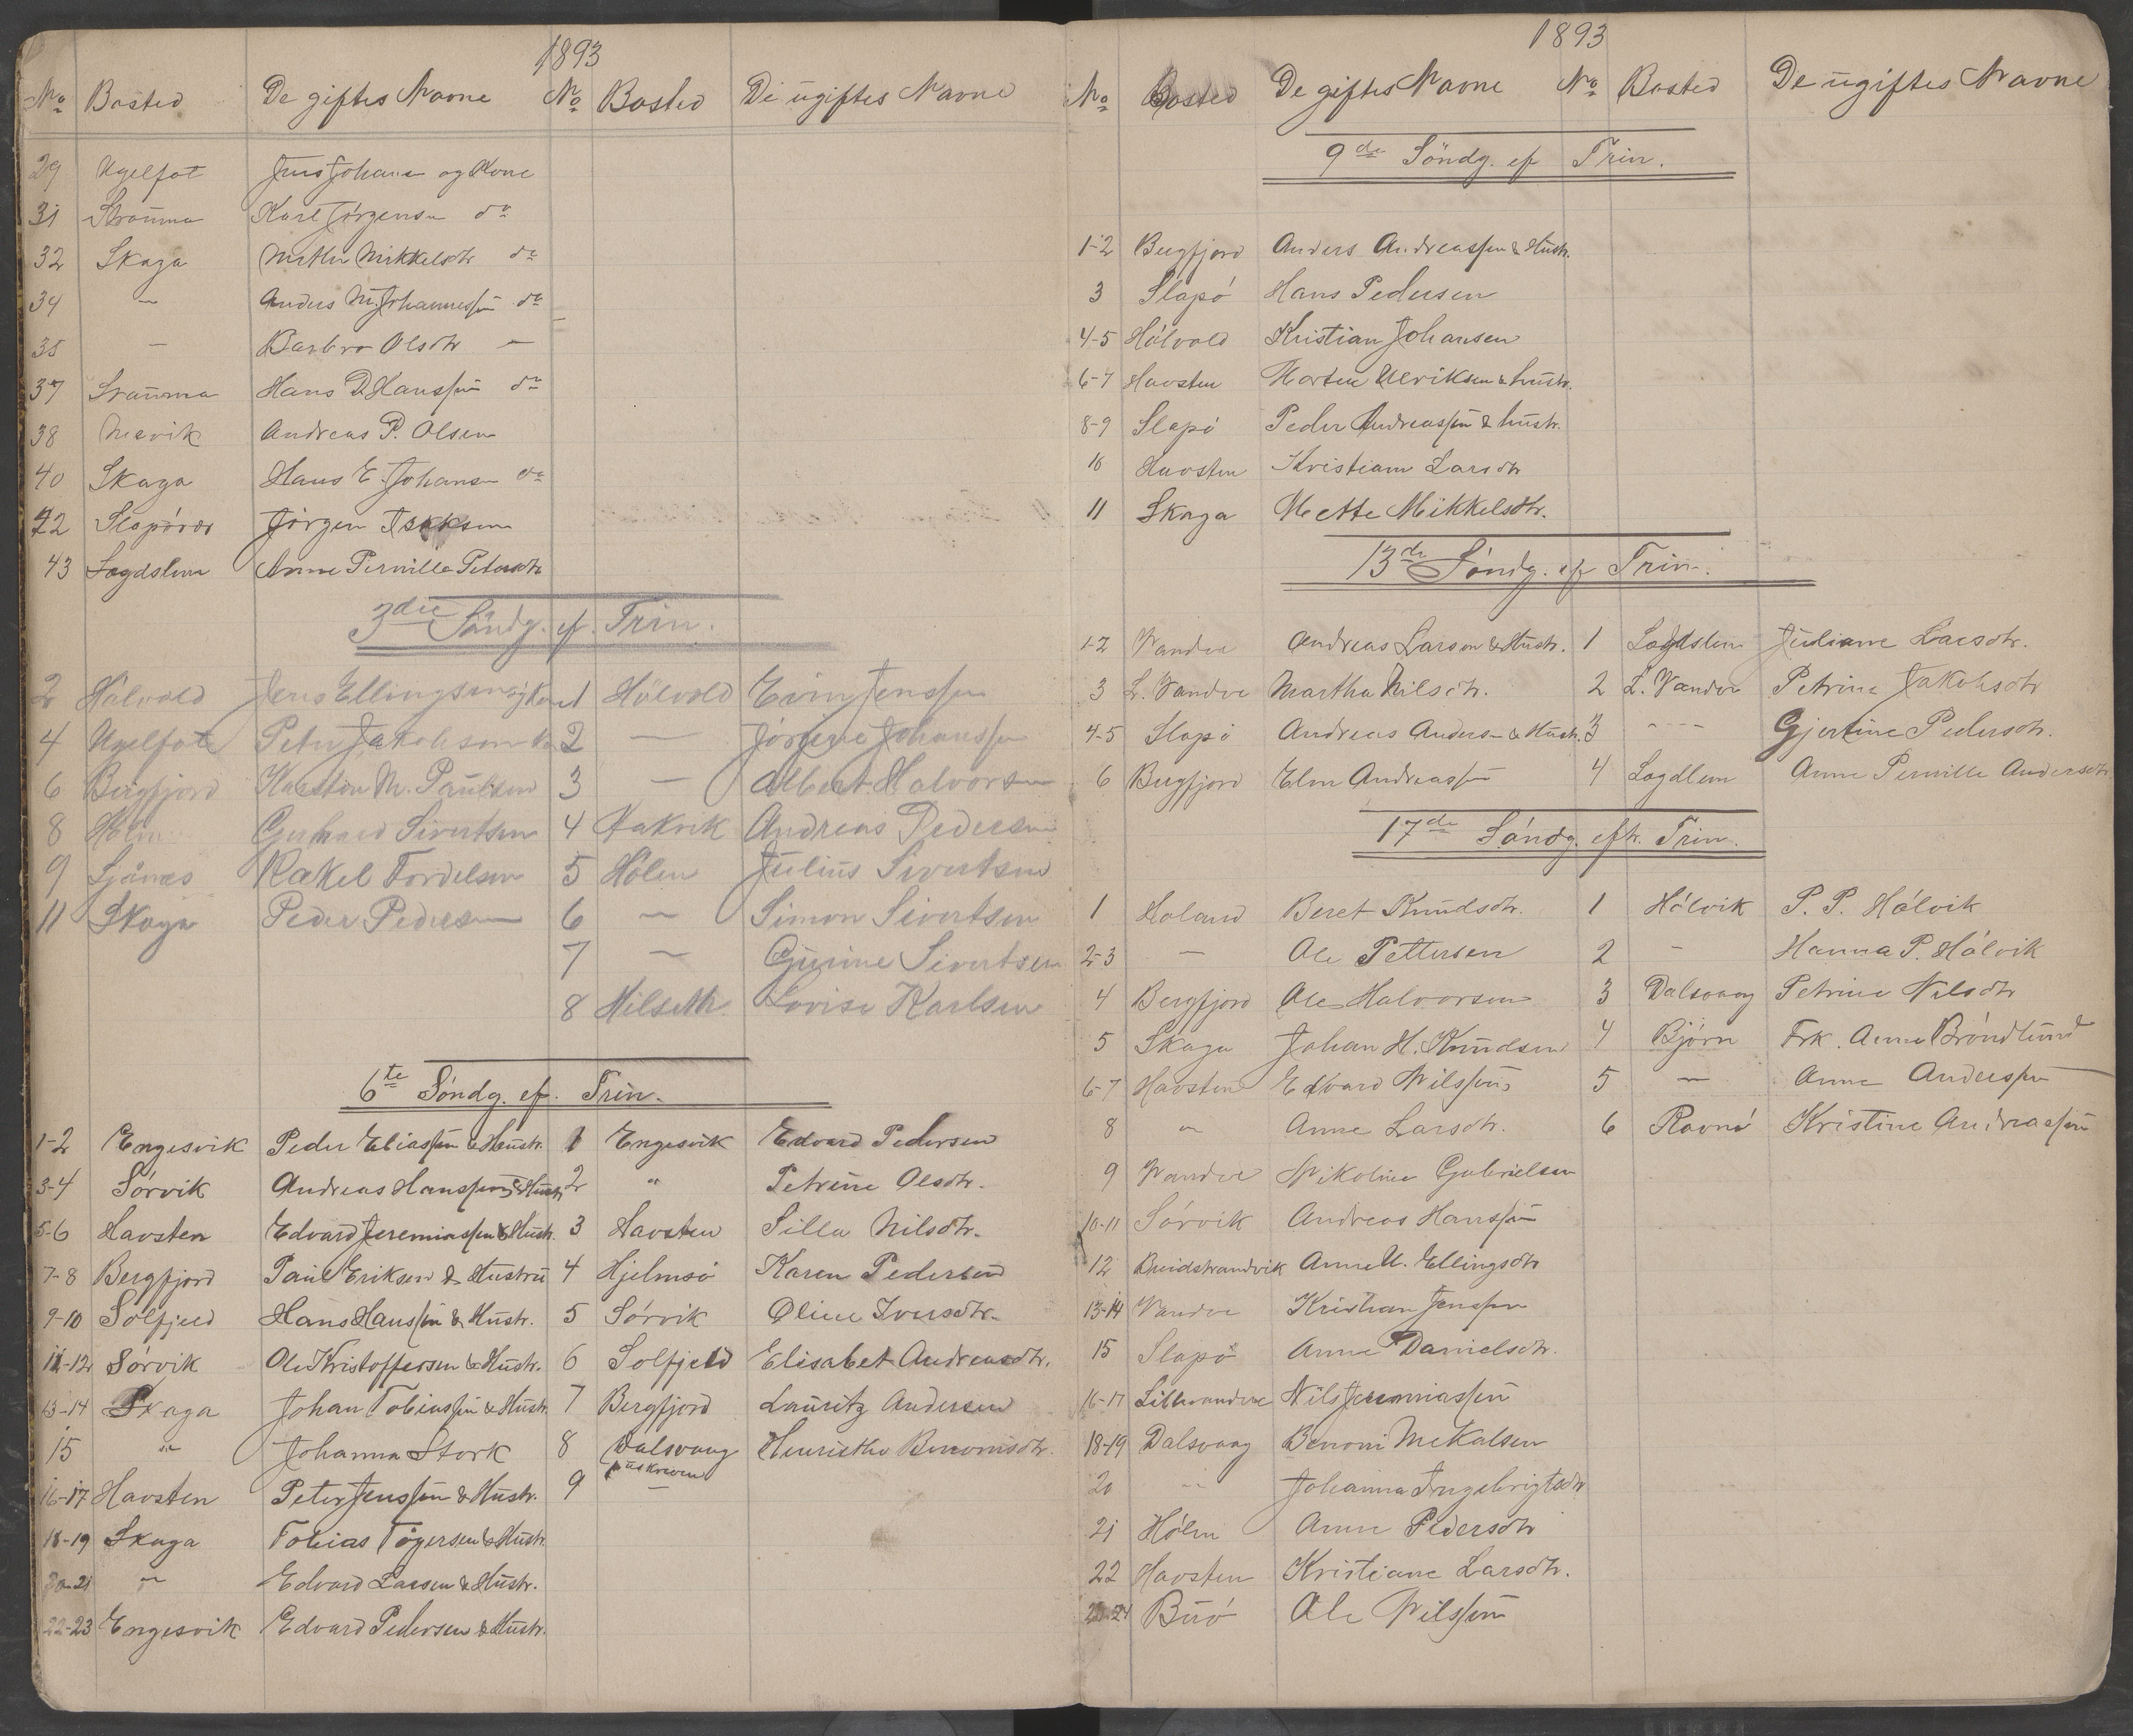 1893
No Bosted De giftes Navne No Bosted De ugiftes Navne
29 Ugelfot Jens Johans og Kone
31 Stramma Karl Jørgensen do
32 Skaga Mette Mikkelsdtr do
34 — Anders M. Johannessen do
35 — Barbro Olsdtr —
37 Stramma Hans D Hanssen do
38 Nesvik Andreas P. Olsen
40 Skaga Hans E. Johansen do
42 Slapøvær Jørgen Isaksen
43 Sogdslem Anne Pernille Petersdtr
3die Søndg. ef. Trin.
2 Hølvold Jens Ellingsen og Kone 1 Hølvold Jenssen
4 Ugelfot Peter Jakobsen 2 — Jørgine Johanssen
6 Bergfjord M. Paulsen 3 — Albert Halvorsen
8 Holm Gerhard Sivertsen 4 Hakvik Andreas Pedersen
9 Sjånæs Rakel Tordelsen 5 Hølen Julius Sivertsen
11 Skaga Peder Pedersen 6 — Simon Sivertsen
7 — Gurine Sivertsen
8 Milseth Lovise Karlsen
6te Søndg. ef. Trin.
1-2 Engesvik Peder Eliassen & Hustr. 1 Engesvik Edvard Pedersen
3-4 Sørvik Andreas Hanssen & Hustr. 2 " Petrine Olsdtr.
5-6 Havsten Edvard Jeremiassen & Hustr. 3 Havsten Silla Nilsdtr.
7-8 Bergfjord Paul Eriksen & Hustru 4 Hjelmsø Karen Pedersen
9-10 Solfjeld Hans Hanssen & Hustr. 5 Sørvik Oline Iversdtr.
11-12 Sørvik Ole Kristoffersen & Hustr. 6 Solfjeld Elisabet Andreasdtr.
13-14 Skaga Johan Tobiassen & Hustr. 7 Bergfjord Lauritz Andersen
15 " Johanna Stork 8 Dalsvaag Benonisdtr.
16-17 Havsten Peter Jenssen & Hustr. 9 —
18-19 Skaga Tobias Tøgersen & Hustr.
20-21 " Edvard Larsen & Hustr.
22-23 Engesvik Edvard Pedersen & Hustr.
1893
No Bosted De giftes Navne No Bosted De ugiftes Navne
9de Søndg. ef Trin.
1-2 Bergfjord Anders Andreassen & Hustr.
3 Slapø Hans Pedersen
4-5 Hølvold Kristian Johansen
6-7 Havsten Morten Ulriksen & hustr.
8-9 Slapø Peder Andreassen & hustr.
10 Havsten Kristiane Larsdtr
11 Skaga Mette Mikkelsdtr.
13de Søndg. ef Trin.
1-2 Vandve Andreas Larsen & Hustr. 1 Sogdslem Juliane Larsdtr.
3 L. Vandve Martha Nilsdtr. 2 L. Vandve Petrine Jakobsdtr
4-5 Slapø Andreas Andersen & Hustr. 3 --- Gjertine Pedersdtr.
6 Bergfjord Elen Andreassen 4 Sogdlem Anne Pernille Andersdtr
17de Søndg. eftr. Trin.
1 Høland Beret Knudsdtr. 1 Hølvik P. P. Hølvik
2-3 — Ole Pettersen 2 - Hanna P. Hølvik
4 Bergfjord Ole Halvorsen 3 Dalsvaag Petrine Nilsdtr
5 Skaga Johan H. Knudsen 4 Bjørn Frk. Anna Brøndlund
6-7 Havsten Edvard Nilssen 5 — Anne Anderssen
8 " Anne Larsdtr. 6 Ravnø Kristine Andreassen
9 Vandve Nikoline Gabrielsen
10-11 Sørvik Andreas Hanssen
12 Breidstrandvik Anne U. Ellingsdtr
13-14 Vandve Kristian Jenssen
15 Slapø Anne Danielsdtr.
16-17 Lillevandve Nils Jeremiassen
18-19 Dalsvaag Benoni Mekalsen
20 -- Johanna Ingebrigtsdtr
21 Hølen Anne Pedersdtr
22 Havsten Kristiane Larsdtr.
23-24 Buø Ole Nilssen